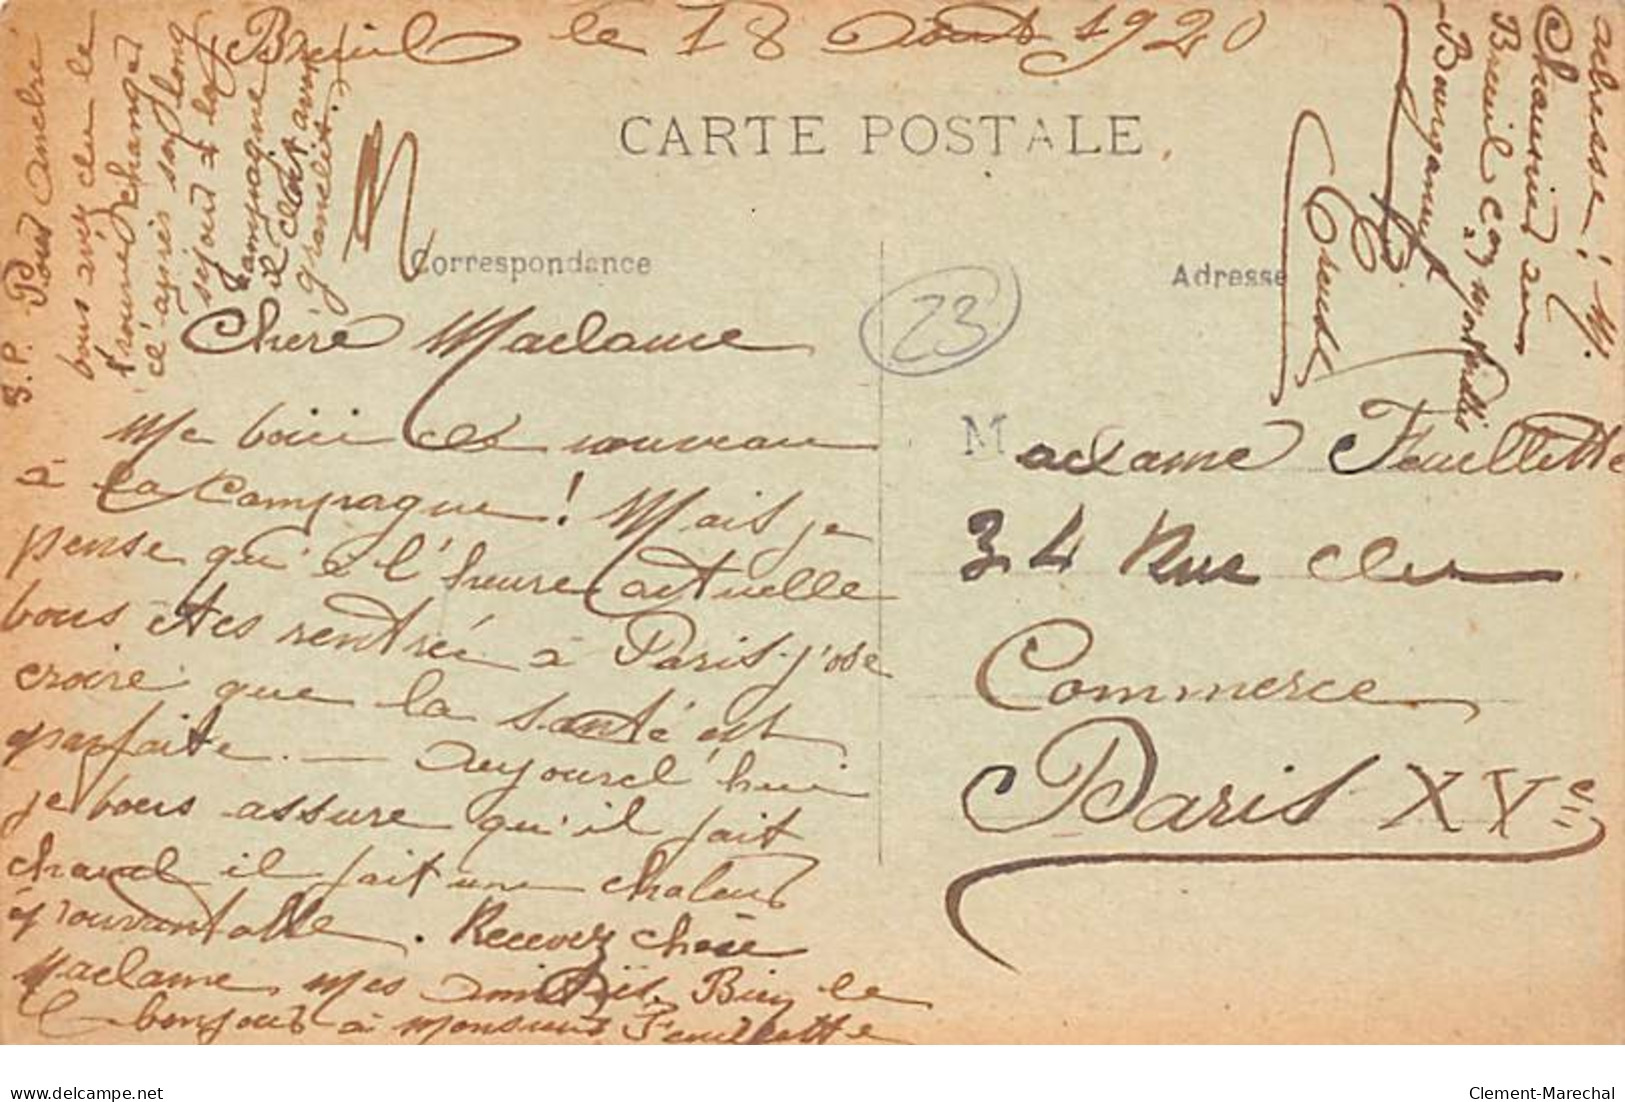 Breuil le 18 Aout 1920
CARTE POSTALE
Correspondance
Adresse
23
Chère Madame
Me voiii de nouveau
à la Campagne! Mais je
pense qu'à l'heure actuelle
vous êtes rentrée à Paris. j'ose
croire que la santé est
parfaite. — aujourd'hui
je vous assure qu'il fait
chaud il fait une chaleur
épouvantable. Recevez chère
Madame mes amitiés. Bien le
bonjour à monsieur Feuillette
S.P. Pour André
vous avez du le
trouver changé
après son long
sejour à la
campagne
il doit avoir
grandit.
M
Madame Feuillette
34 Rue du
Commerce
Paris XVe
adresse! M.
Chaussier au
Breuil
Bourganeuf
Creuse
delcampe.net
Clement-Marechal